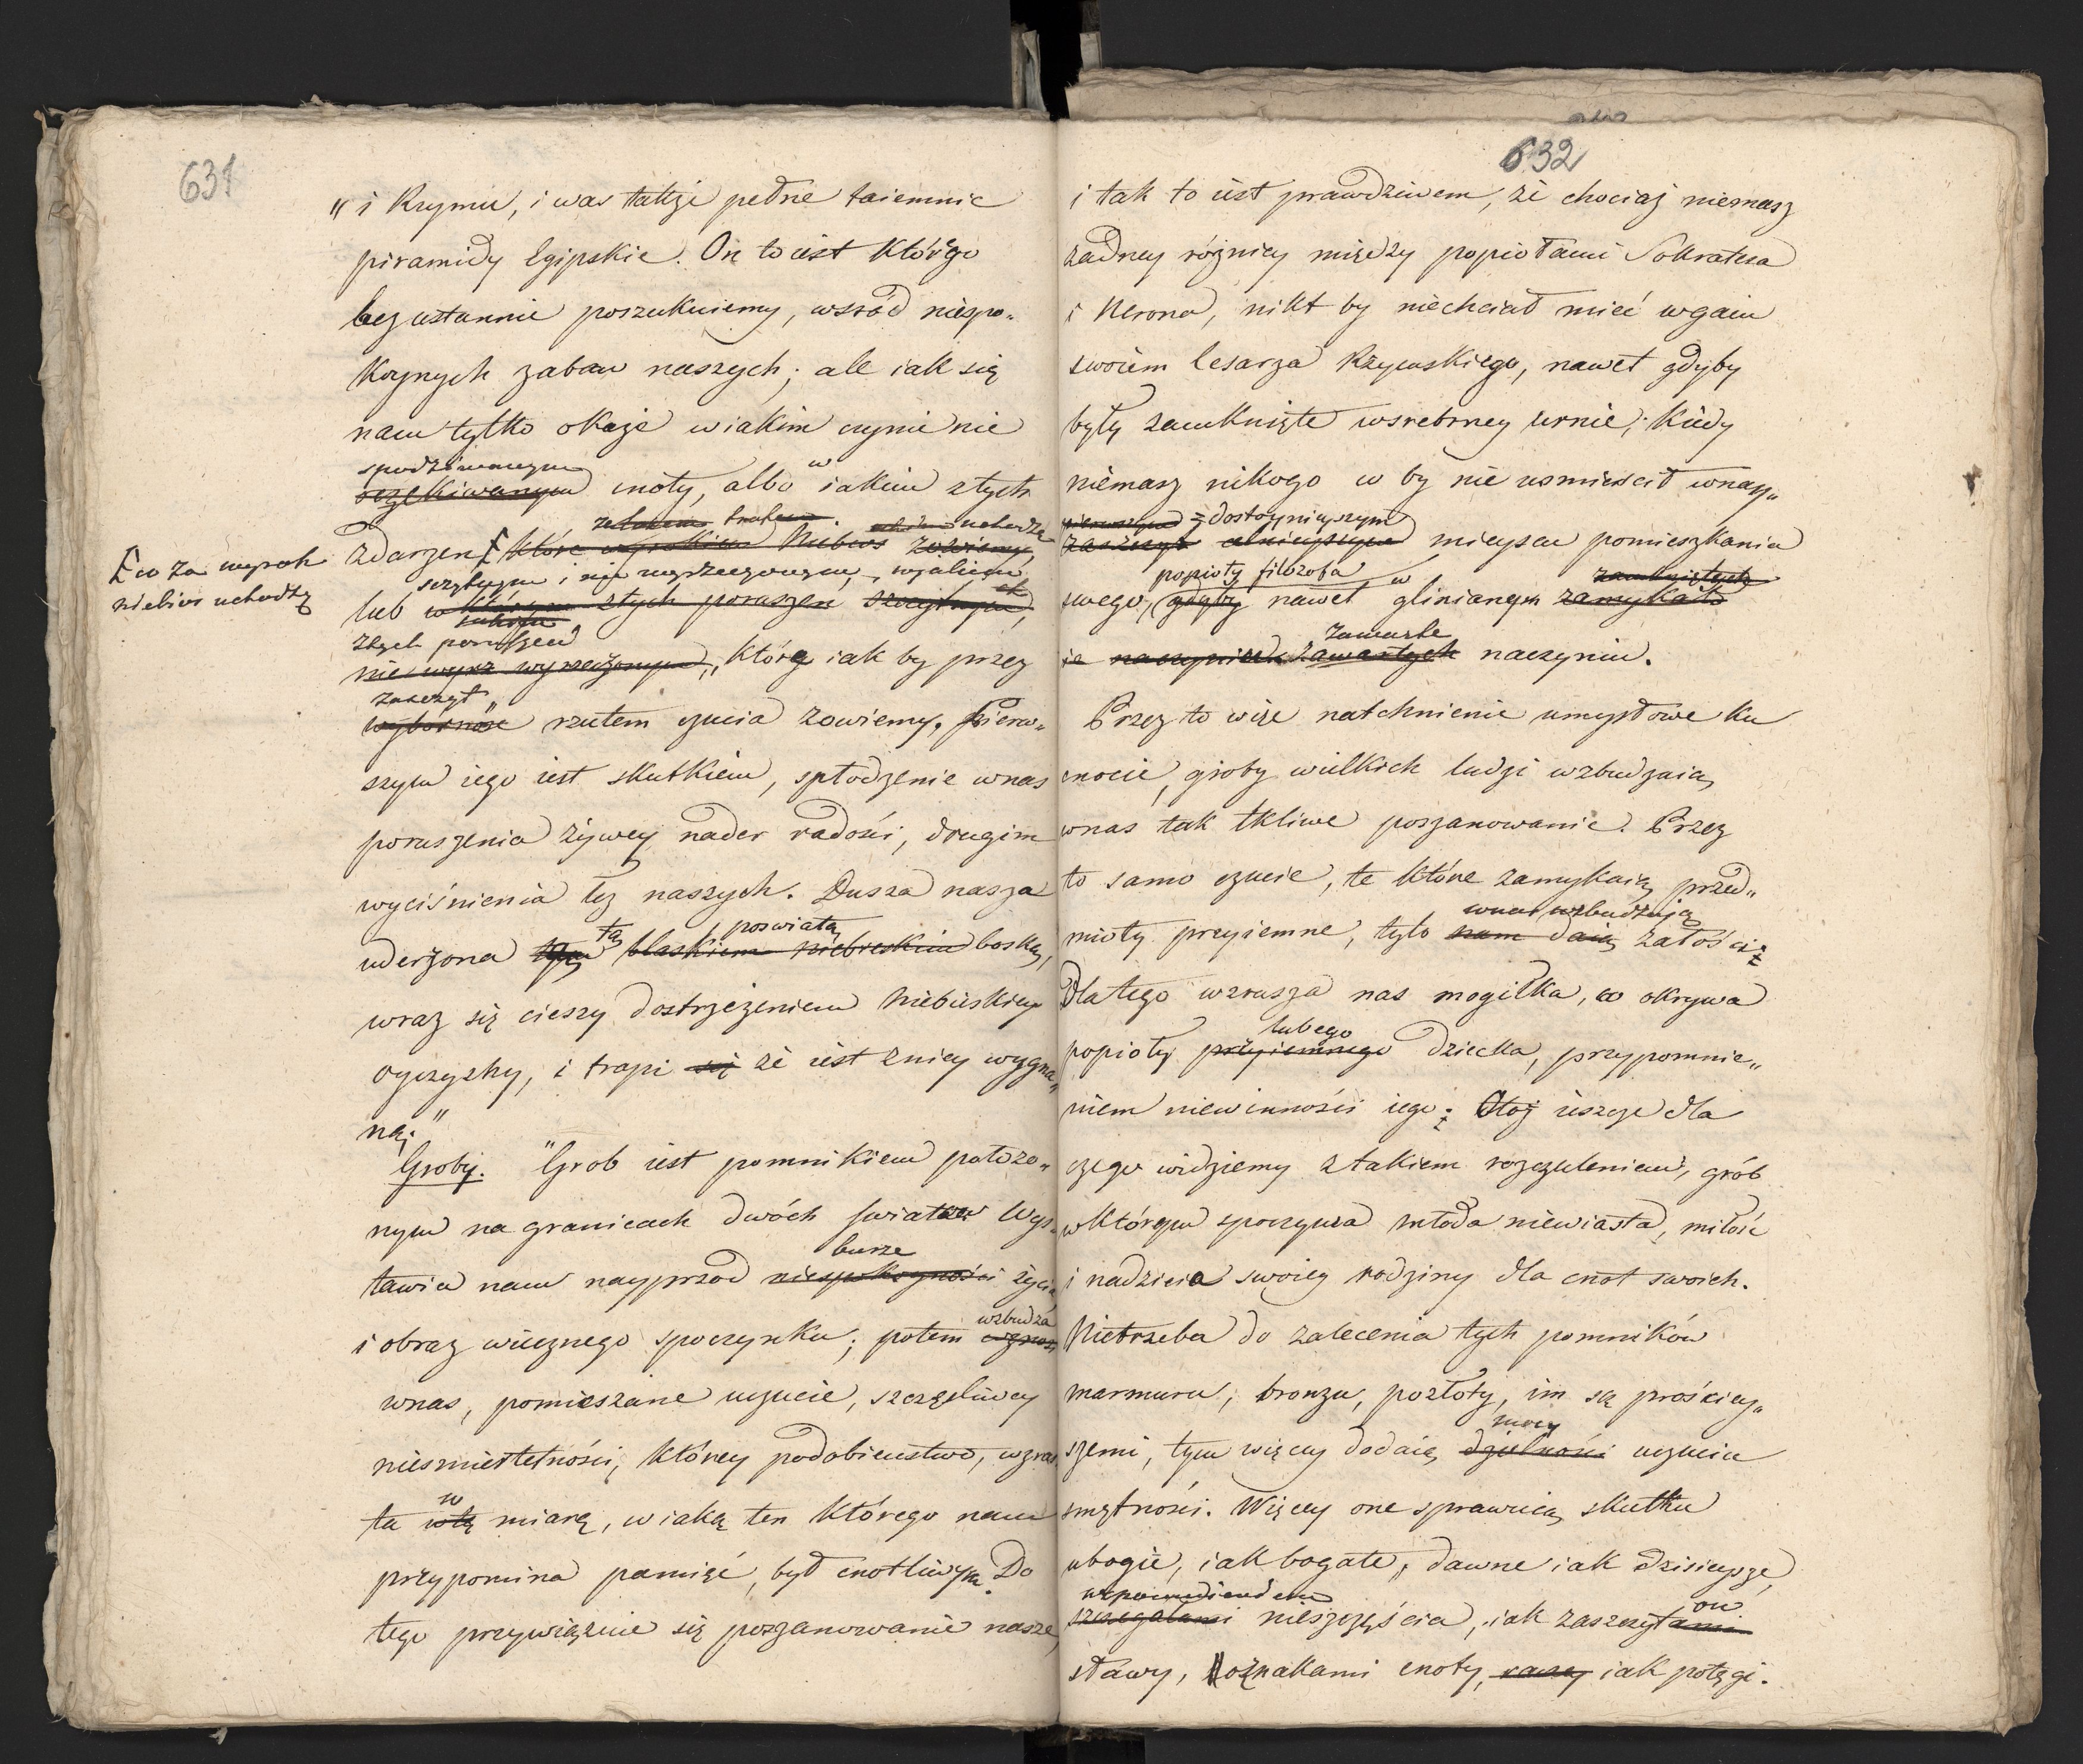 631
" i Rzymu, i was takze pełne taiemnic
piramidy Egipskie. On to iest którego
bezustannie poszukuiemy, wsród niespo„
koynych zabaw naszych; ale iak się
nam tylko okaże w iakim czynie nie
spodziewanym
oczekiwanym cnoty, albo w iakim z tych
zdarzeń które wyrokiem Niebios zowiemy, uchodzą
co za wyrok
niebios uchodzą
lub w którym z tych poruszeń szczytnym,
szczytnym i nie wyrzeczonym,
tych poruszeń
nie wyrz wyrzeczonym, które iak by przez
zaszczyt
wyborność rzutem czucia zowiemy. Pierw„
szym iego iest skutkiem, spłodzenie w nas
poruszenia żywey nader radości, drugim
wyciśnienia łez naszych. Dusza nasza
tą poswiatą
uderzona tym blaskiem niebieskim boską,
wraz się cieszy dostrzeżeniem Niebieskiey
oyczyzny, i trapi się że iest z niey wygna„
ną."
Groby. "Grob iest pomnikiem położo„
nym na granicach dwóch swiatów Wys„
burze
tawia nam nayprzod niespokoyności życia,
wzbudza
i obraz wiecznego spoczynku; potem wznosi
w nas, pomieszane uczucie, szczęśliwey
niesmiertelności, którey podobieństwo, wzras„
w
ta w tę miarę, w iaką ten którego nam
przypomina pamięć, był cnotliwym. Do
tego przywięzuie się poszanowanie nasze,
632
i tak to iest prawdziwem, że chociaż niemasz
żadney różnicy między popiołami Sokratesa
i Nerona, nikt by niechciał mieć w gaiu
swoiem Cesarza Rzymskiego, nawet gdyby
były zamknięte w srebrney urnie; kiedy
niemasz nikogo co by nie umieścił w nay„
pierwszym dostoynieyszym
zaszczyt celnieyszym mieyscu pomieszkania
popioły filozofa w zamkniętych
swego, gdyby nawet glinianym zamykało
zawarte
ie naczyniach zawartych naczyniu.
Przez to więc natchnienie umysłowe ku
cnocie, groby wielkich ludzi wzbudzaią
w nas tak tkliwe poszanowanie. Przez
to samo czucie, te które zamykaią przed„
w nas wzbudzaią
mioty przyiemne, tyło nam daią załości;
Dlatego wzrusza nas mogiłka, co okrywa
lubego
popioły przyiemnego dziecka, przypomnie„
niem niewinności iego; Otoż ieszcze dla
czego widziemy z takiem rozczuleniem, grób
w którym spoczywa młoda niewiasta, miłość
i nadzieia swoiey rodziny dla cnot swoich.
Nietrzeba do zalecenia tych pomników
marmuru, bronzu, pozłoty, im są prościey„
mocy
szemi, tym więcey dodaią dzielności uczuciu
smętności. Więcey one sprawuią skutku
ubogie, iak bogate, dawne iak dzisieysze,
szczegołami nieszczęścia, iak zaszczytami
ów
sławy, oznakami cnoty, raczey iak potęgi.